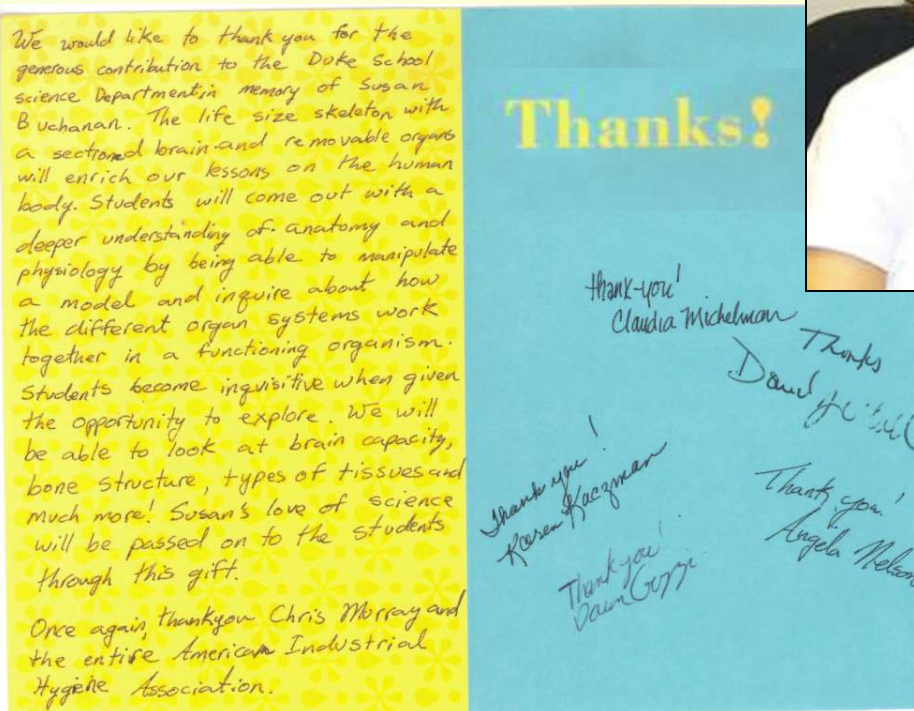 We would like to thank you for the
generous contribution to the Duke School
science Department, in memory of Susan
Buchanan. The life size skeleton with
a sectioned brain and removable organs
will enrich our lessons on the human
body. Students will come out with a
deeper understanding of anatomy and
physiology by being able to manipulate
a model and inquire about how
the different organ systems work
together in a functioning organism.
Students become inquisitive when given
the opportunity to explore. We will
be able to look at brain capacity,
bone structure, types of tissues and
much more! Susan's love of science
will be passed on to the students
through this gift.
Once again, thankyou Chris Morray and
the entire American Industrial
Hygiene Association.
Thanks!
thank-you!
Claudia Michelman
Thanks
Thank you!
Karen Kaczman
Thank you!
Angela Nelson
Thank you!
Dawn Gozzi